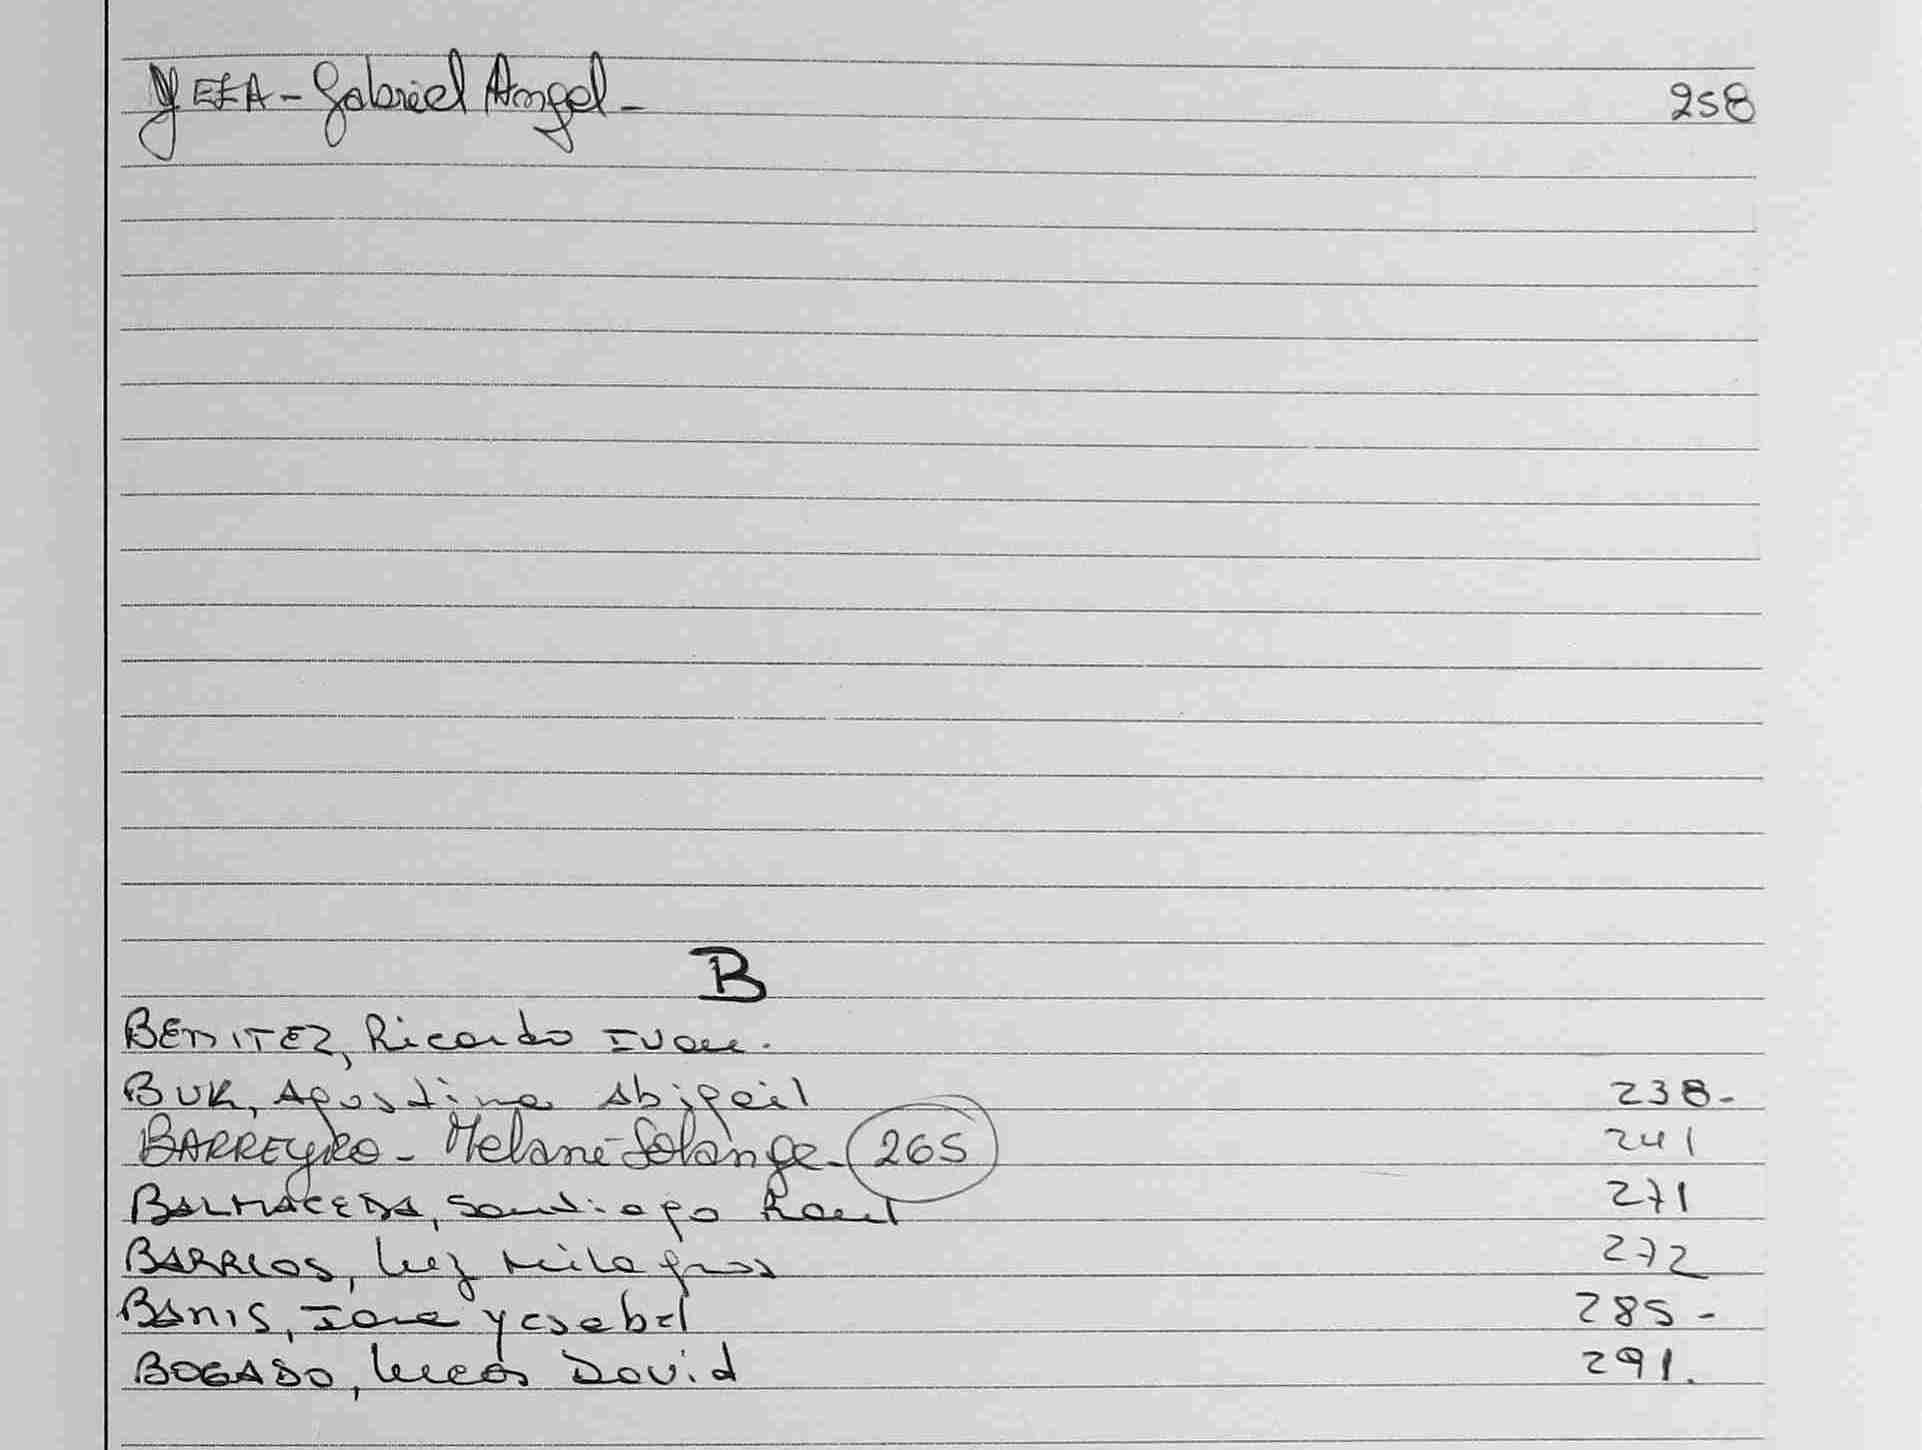 Gabriel Angel - 258
B
BENITEZ, Ricardo Ivan.
BUK, Agostina Abigail 238-
BARREYRO - Melani Solange - 265 241
BALMACEDA, Santiago Raul 271
BARRIOS, Luz Milagros 272
BANIS, Iara Ycsabel 285-
BOGADO, Lucas David 291.